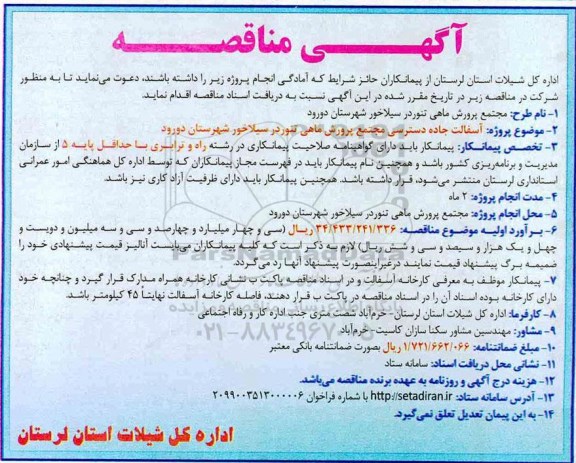 آگهـی مناقصـه
اداره کل شیلات استان لرستان از پیمانکاران حائز شرایط که آمادگی انجام پروژه زیر را داشته باشند، دعوت می‌نماید تا به منظور
شرکت در مناقصه زیر در تاریخ مقرر شده در این آگهی نسبت به دریافت اسناد مناقصه اقدام نماید.
۱- نام طرح: مجتمع پرورش ماهی تنوردر سیلاخور شهرستان دورود
۲- موضوع پروژه: آسفالت جاده دسترسی مجتمع پرورش ماهی تنوردر سیلاخور شهرستان دورود
۳- تخصص پیمانکار: پیمانکار باید دارای گواهینامه صلاحیت پیمانکاری در رشته راه و ترابری با حداقل پایه ۵ از سازمان
مدیریت و برنامه‌ریزی کشور باشد و همچنین نام پیمانکار باید در فهرست مجاز پیمانکاران که توسط اداره کل هماهنگی امور عمرانی
استانداری لرستان منتشر می‌شود، قرار داشته باشد. همچنین پیمانکار باید دارای ظرفیت آزاد کاری نیز باشد.
۴- مدت انجام پروژه: ۲ ماه
۵- محل انجام پروژه: مجتمع پرورش ماهی تنوردر سیلاخور شهرستان دورود
۶- برآورد اولیه موضوع مناقصه: ۳۴/۴۳۳/۲۴۱/۳۳۶ ریـال (سی و چهار میلیارد و چهارصد و سی و سه میلیون و دویست و
چهل و یک هزار و سیصد و سی و شش ریال) لازم به ذکر است که کلیه پیمانکاران می‌بایست آنالیز قیمت پیشنهادی خود را
ضمیمه برگ پیشنهاد قیمت نمایند در غیر اینصورت پیشنهاد آنها رد می‌گردد.
۷- پیمانکار موظف به معرفی کارخانه آسفالت و در اسناد مناقصه پاکت ب نشانی کارخانه همراه مدارک قرار گیرد و چنانچه خود
دارای کارخانه بوده اسناد آن را در اسناد مناقصه در پاکت ب قرار دهند، فاصله کارخانه آسفالت نهایتاً ۴۵ کیلومتر باشد.
۸- کارفرما: اداره کل شیلات استان لرستان-خرم‌آباد شصت‌متری جنب اداره کار و رفاه اجتماعی
۹- مشاور: مهندسین مشاور سکنا سازان کاسیت-خرم‌آباد
۱۰- مبلغ ضمانتنامه: ۱/۷۲۱/۶۶۲/۰۶۶ ریال بصورت ضمانتنامه بانکی معتبر
۱۱- نشانی محل دریافت اسناد: سامانه ستاد
۱۲- هزینه درج آگهی و روزنامه به عهده برنده مناقصه می‌باشد.
۱۳- آدرس سامانه ستاد: http://setadiran.ir با شماره فراخوان ۲۰۹۹۰۰۳۵۱۳۰۰۰۰۰۶
۱۴- به این پیمان تعدیل تعلق نمی‌گیرد.
اداره کل شیلات استان لرستان